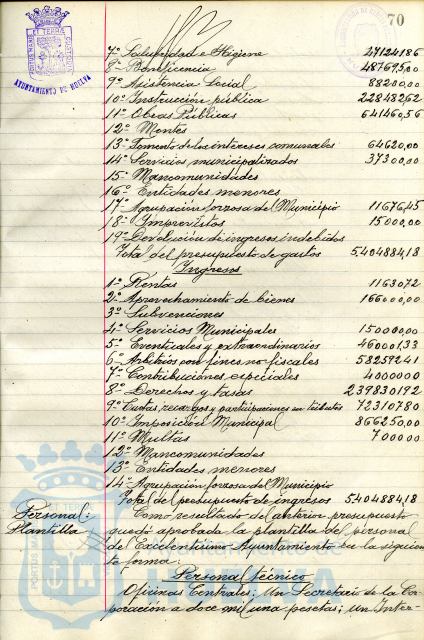 70
AYUNTAMIENTO DE HUELVA
7º Salubridad e Higiene 271241,86
8º Beneficencia 487695,00
9º Asistencia Social 88200,00
10º Instrucción pública 228482,62
11º Obras Públicas 641460,56
12º Montes
13º Fomento de los intereses comunales 64620,00
14º Servicios municipalizados 37300,00
15º Mancomunidades
16º Entidades menores
17º Agrupación forzosa del Municipio 11676,45
18º Imprevistos 15000,00
19º Devolución de ingresos indebidos
Total del presupuesto de gastos 5.404884,18
Ingresos
1º Rentas 11630,72
2º Aprovechamiento de bienes 166000,00
3º Subvenciones
4º Servicios Municipales 150000,00
5º Eventuales y extraordinarios 460001,33
6º Arbitrios con fines no fiscales 532572,41
7º Contribuciones especiales 40000,00
8º Derechos y tasas 2.398301,92
9º Cuotas, recargos y participaciones en tributos 723107,80
10º Imposición Municipal 866250,00
11º Multas 7000,00
12º Mancomunidades
13º Entidades menores
14º Agrupación forzosa del Municipio
Total del presupuesto de ingresos 5.404884,18
Personal: Como resultado del anterior presupuesto
Plantilla quedó aprobada la plantilla del personal
del Excelentísimo Ayuntamiento en la siguien-
te forma:
Personal técnico
Oficinas Centrales: Un Secretario de la Cor-
poración a doce mil una pesetas; un Inter-